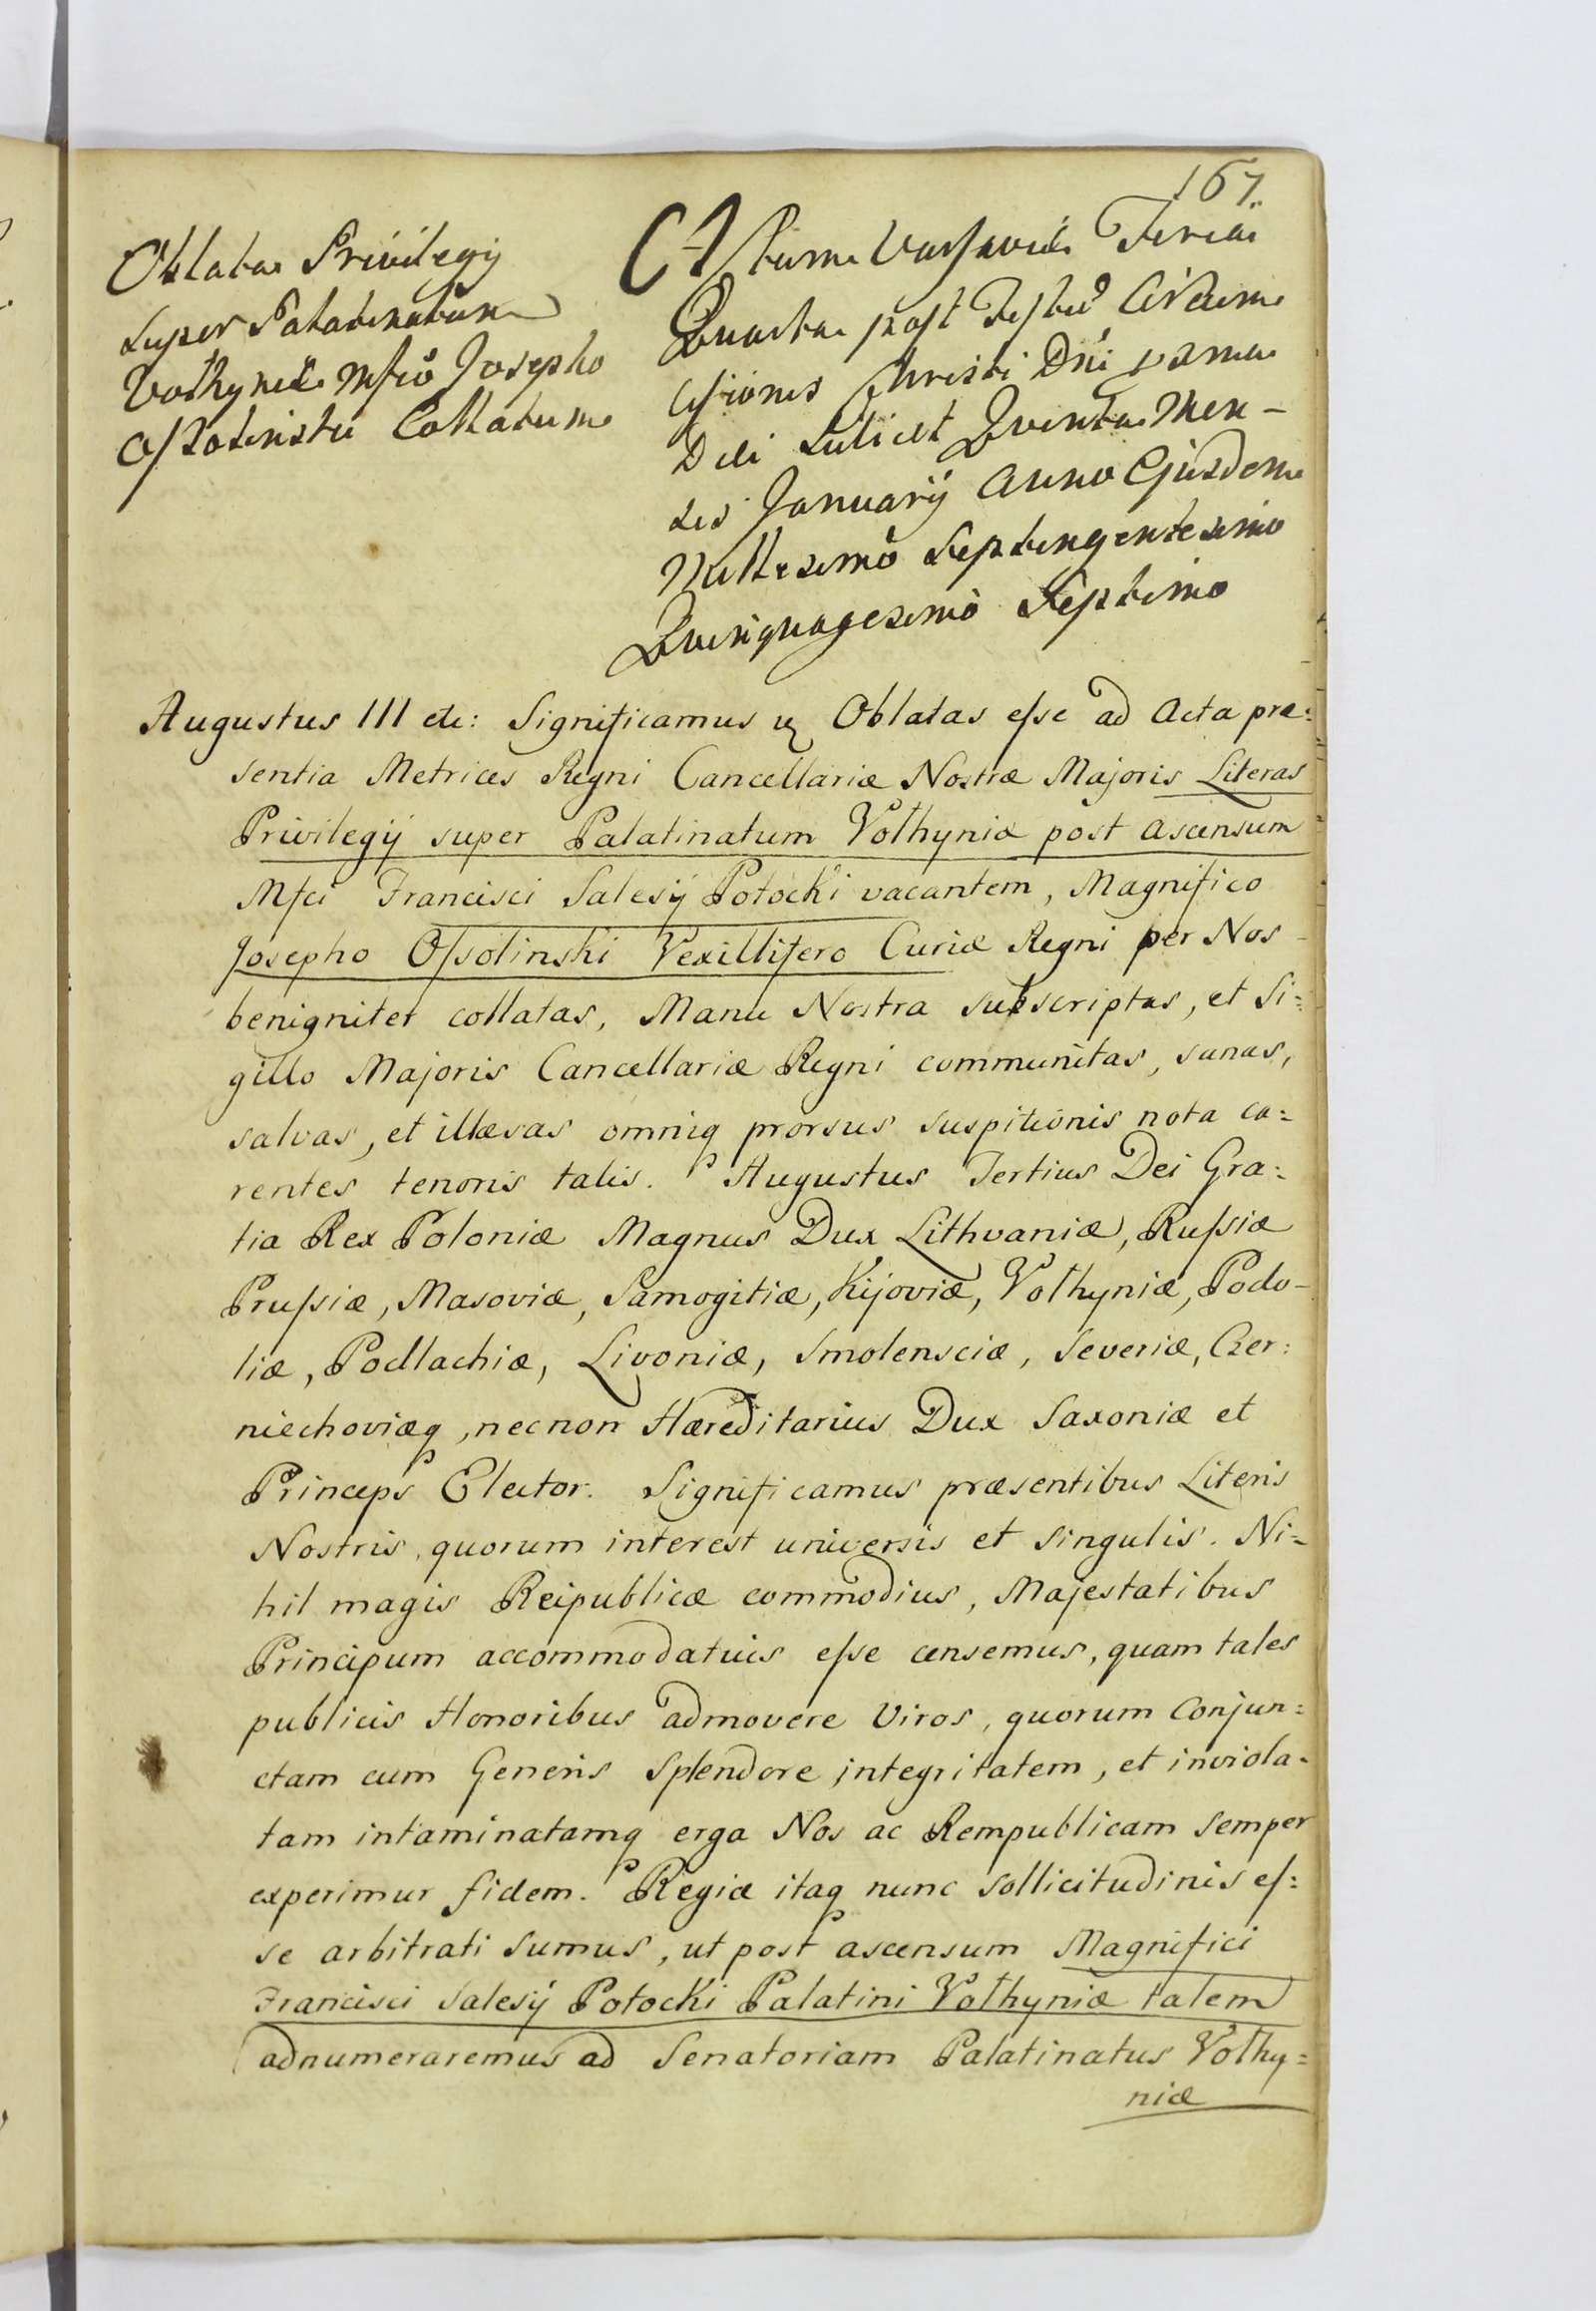 167.
Oblata Privilegij
super Palatinatum
Volhyniæ Mfco Josepho
Ossolinski Collatum
Actum Varsaviæ Feria
Quarta post Festũ Circum
cisionis Christi Dñi prima
Diei Scilicet Quinta Men-
sis Januarij Anno Ejusdem
Millesimo Septingentesimo
Quinquagesimo Septimo
Augustus III etc: Significamus Oblatas eſse ad Acta præ:
sentia Metrices Regni Cancellariæ Nostræ Majoris Literas
Privilegij super Palatinatum Volhyniæ post ascensum
Mfci Francisci Salesij Potocki vacantem, Magnifico
Josepho Oſsolinski Vexillifero Curiæ Regni per Nos
benigniter collatas, Manu Nostra subscriptas, et Si:
gillo Majoris Cancellariæ Regni communitas, sanas,
salvas, et illæsas omniq prorsus suspitionis nota ca:
rentes tenoris talis. Augustus Tertius Dei Gra:
tia Rex Poloniæ Magnus Dux Lithvaniæ, Ruſsiæ
Pruſsiæ, Masoviæ, Samogitiæ, Kijoviæ, Volhyniæ, Podo-
liæ, Podlachiæ, Livoniæ, Smolensciæ, Severiæ, Czer:
niechoviæq, necnon Hæreditarius Dux Saxoniæ et
Princeps Elector. Significamus præsentibus Literis
Nostris, quorum interest universis et singulis. Ni:
hil magis Reipublicæ commodius, Majestatibus
Principum accommodatius eſse censemus, quam tales
publicis Honoribus admovere Viros, quorum Conjun:
ctam cum Generis Splendore integritatem, et inviola-
tam intaminatamq erga Nos ac Rempublicam semper
experimur fidem. Regiæ itaq nunc sollicitudinis eſ:
se arbitrati sumus, ut post ascensum Magnifici
Francisci Salesij Potocki Palatini Volhyniæ talem
adnumeraremus ad Senatoriam Palatinatus Volhy:
niæ